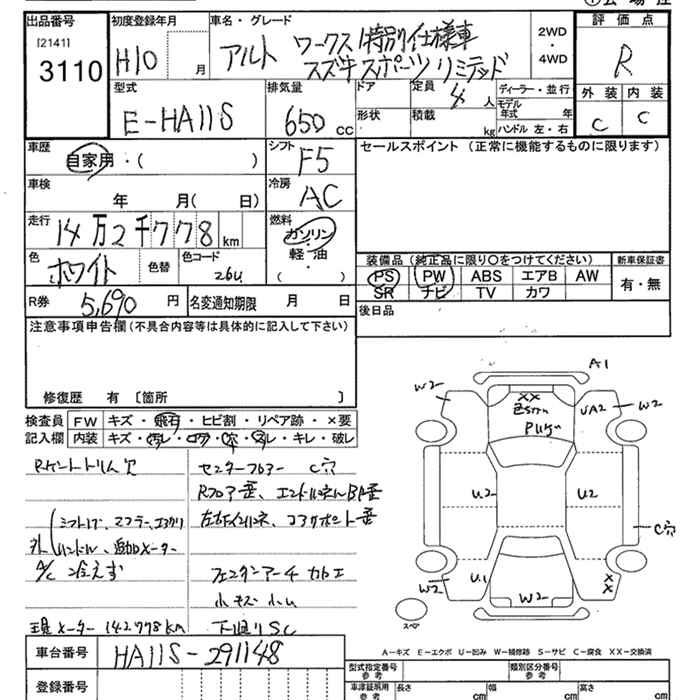 出品番号
[2141]
3110
初度登録年月
H10 月
車名・グレード
アルト ワークス 特別仕様車
スズキスポーツリミテッド
2WD
・
4WD
評価点
R
外装 内装
C C
型式
E-HA11S
排気量
650 cc
ドア
定員 4 人
形状
積載 kg
ディーラー・並行
モデル年式 年
ハンドル 左・右
車歴
自家用・( )
シフト
F5
セールスポイント (正常に機能するものに限ります)
車検
年 月( 日)
冷房
AC
走行
14万2千778 km
燃料
ガソリン
・
軽・油
( )
色
ホワイト
色替
色コード
26U
装備品 (純正品に限り○をつけてください)
新車保証書
PS PW ABS エアB AW
SR ナビ TV カワ
有・無
R券 5,690 円
名変通知期限 月 日
後日品
注意事項申告欄(不具合内容等は具体的に記入して下さい)
修復歴 有 〔箇所 〕
検査員
記入欄
FW キズ・飛石・ヒビ割・リペア跡・×要
内装 キズ・汚レ・コゲ・穴・スレ・キレ・破レ
センターフロアー C穴
Rフロア歪、
A/C 冷えず
現メーター 142778KM
下廻りSC
A1
W2
XX
W2
UA2
U2
U2
C穴
W2
U1
W2
XX
スペア
A−キズ E−エクボ U−凹み W−補修跡 S−サビ C−腐食 XX−交換済
車台番号
HA11S-291148
登録番号
型式指定番号
参考
類別区分番号
参考
車検証寸法
参考
長さ cm
幅 cm
高さ cm